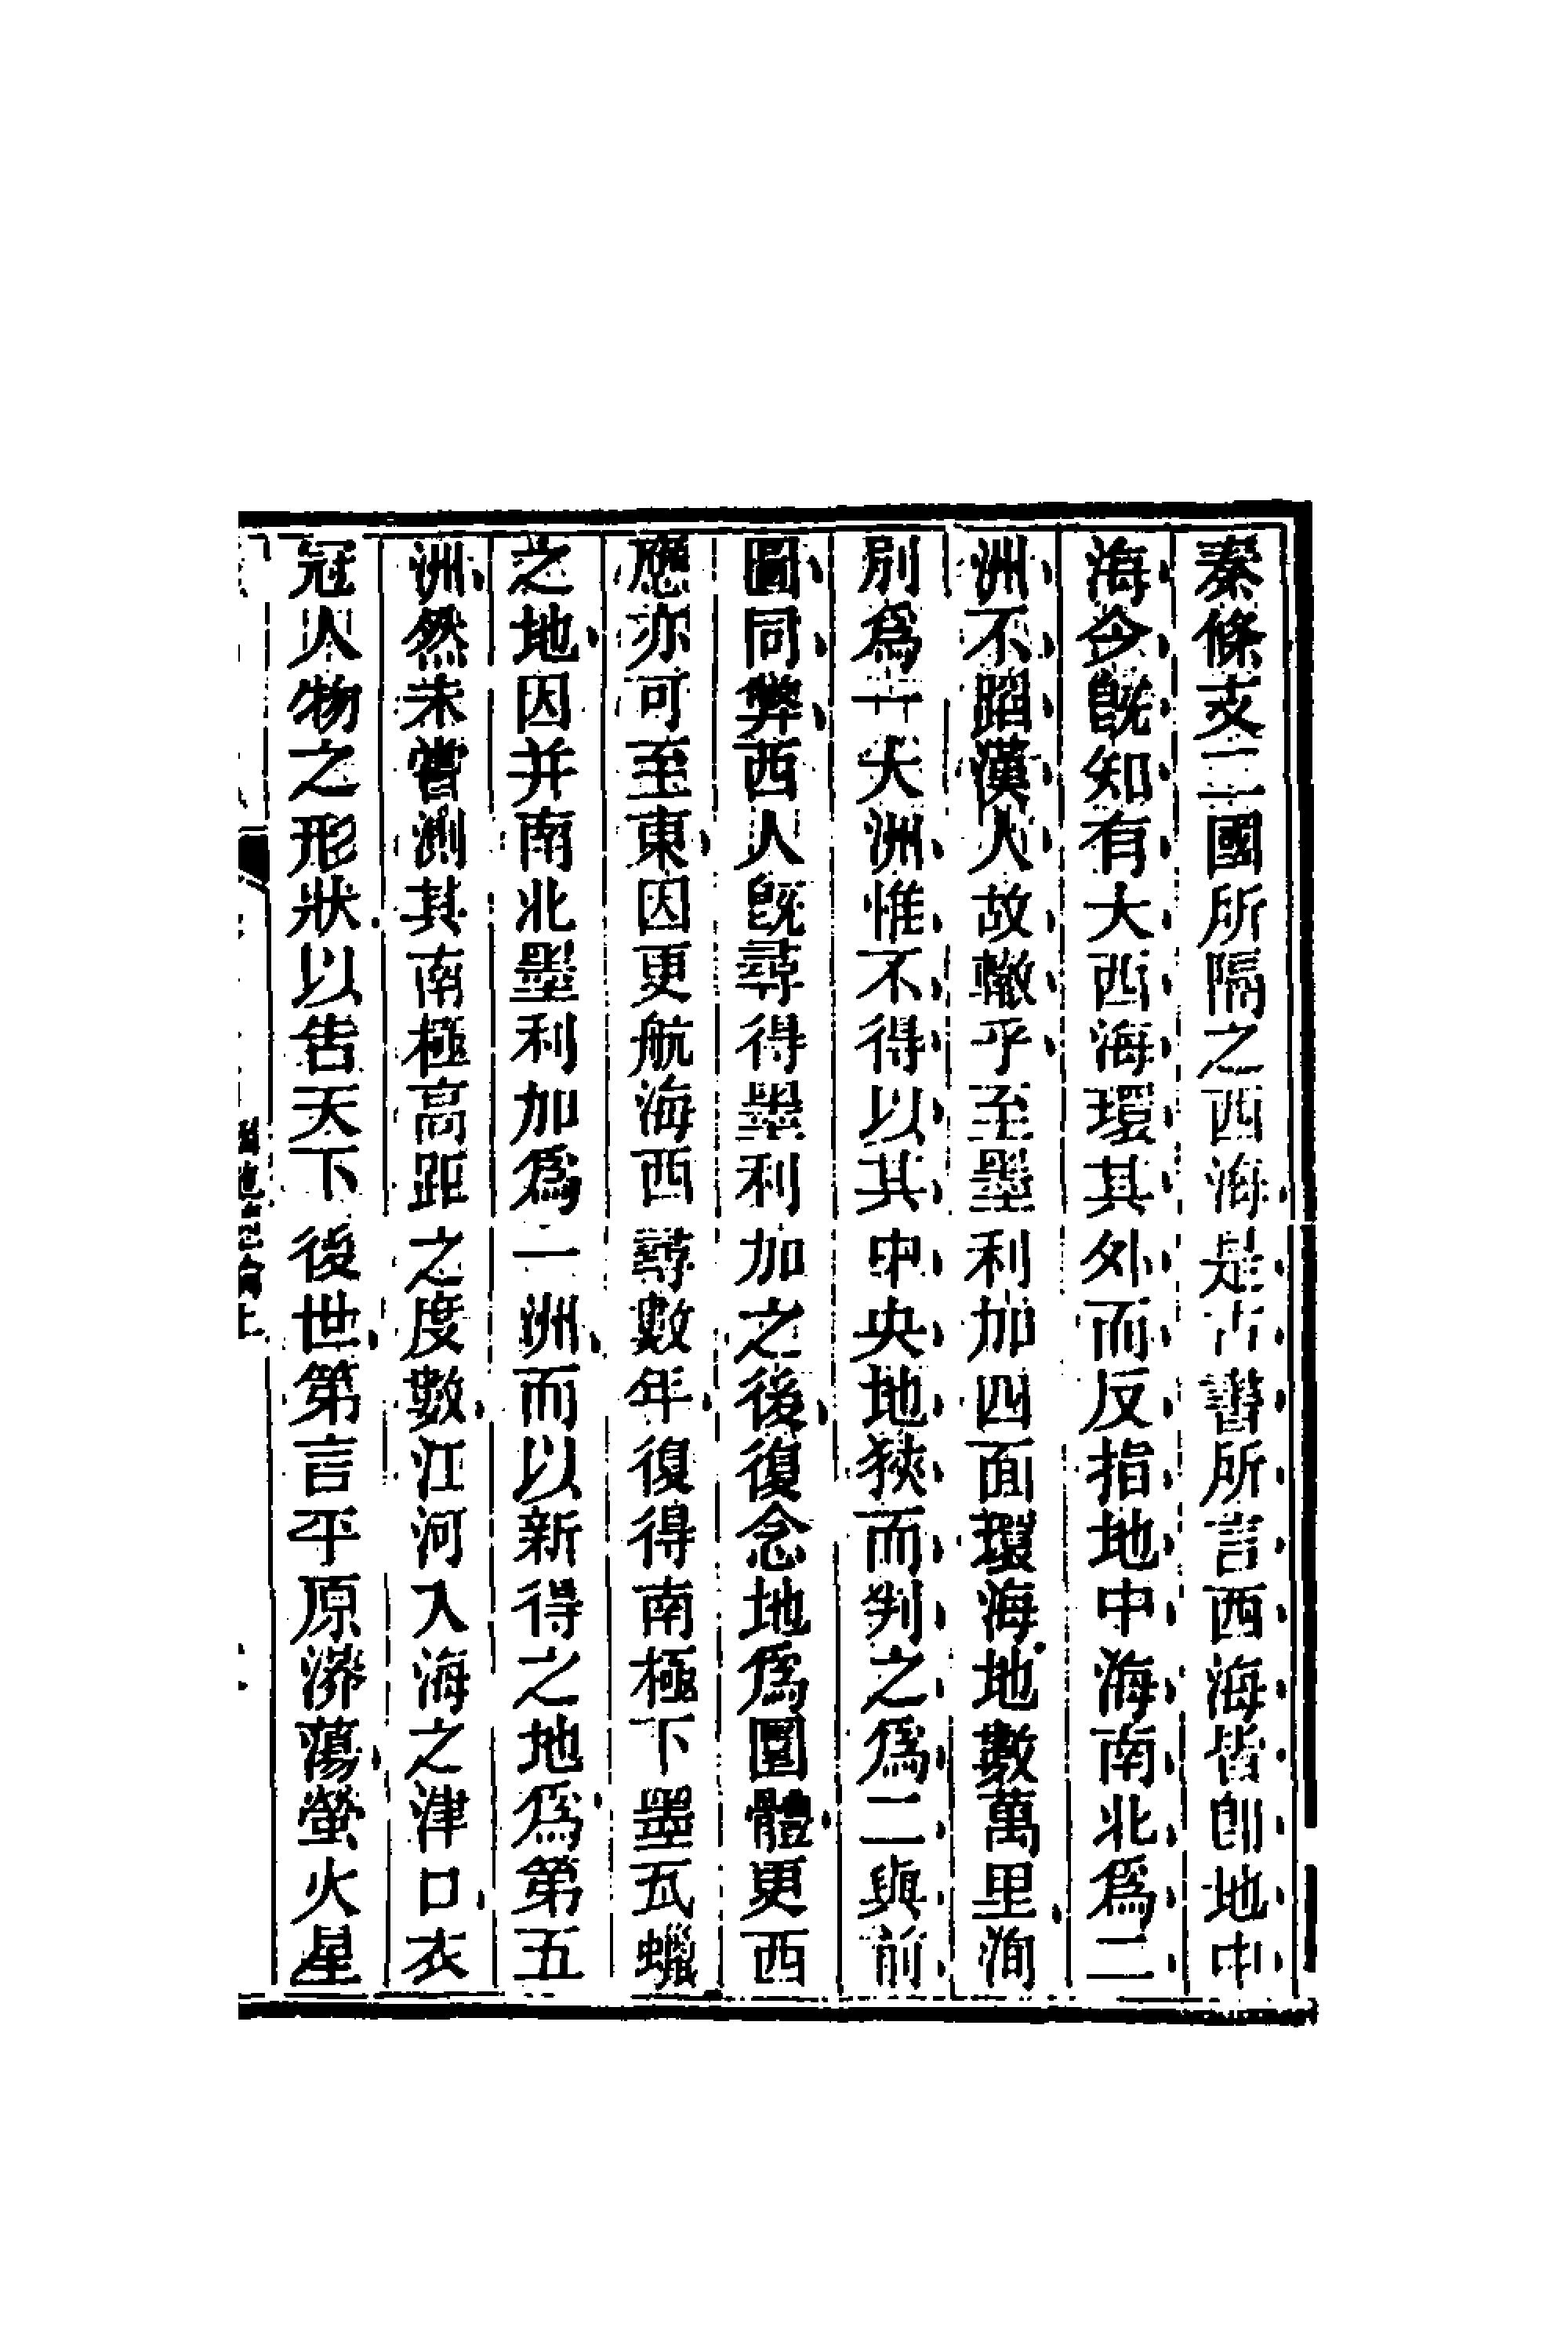 秦條支二國所隔之西海是古書所言西海皆卽地中
海今旣知有大西海環其外而反指地中海南北爲二
洲不蹈漢人故轍乎至墨利加四面環海地數萬里洵
別爲一大洲惟不得以其中央地狹而判之爲二與前
圖同弊西人旣尋得墨利加之後復念地爲圓體更西
應亦可至東因更航海西尋數年復得南極下墨瓦蠟
之地因并南北墨利加爲一洲而以新得之地爲第五
洲然未嘗測其南極高距之度數江河入海之津口衣
冠人物之形狀以告天下後世第言平原漭蕩螢火星